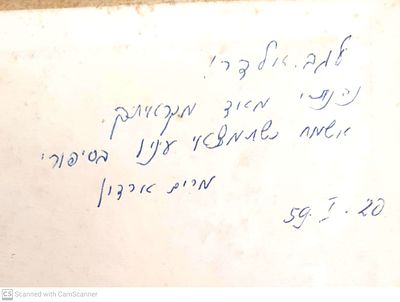 לגב. אלדרי!
נהנתי מאוד מקראיתך.
אשמח כשתמצאי ענין בסיפורי
מרים ארדון
59. I. 20
CS Scanned with CamScanner